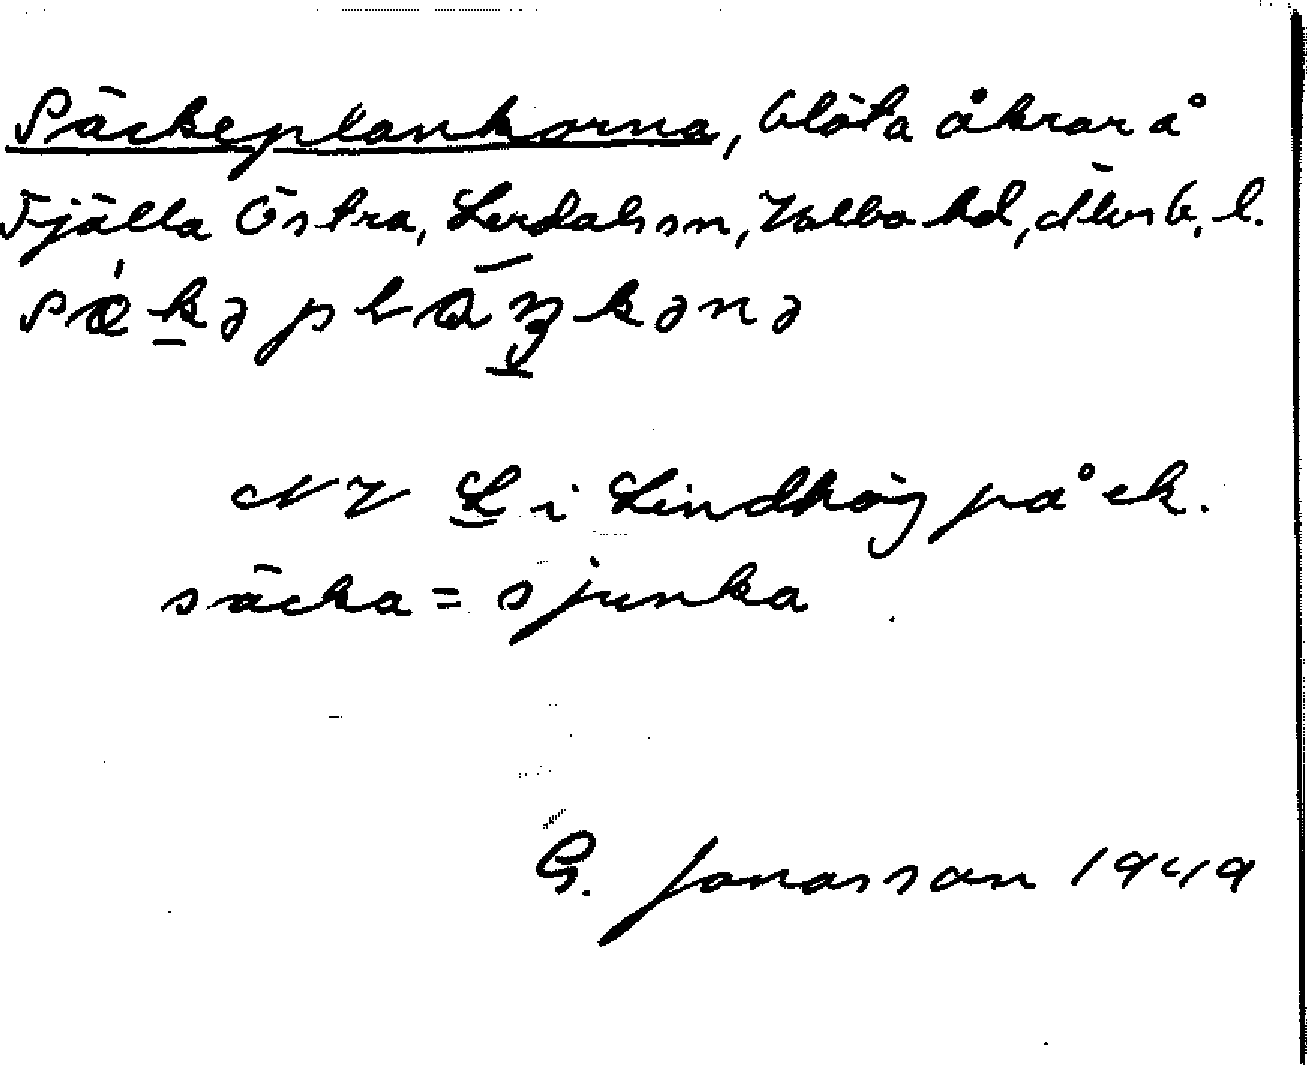 Säckeplankorna, blöta åkrar å
Fjälla Östra, Lerdals sn, Valbo hd, Älvsb. l.
NV L i Lindhög på ek.
säcka = sjunka
G. Jonasson 1949